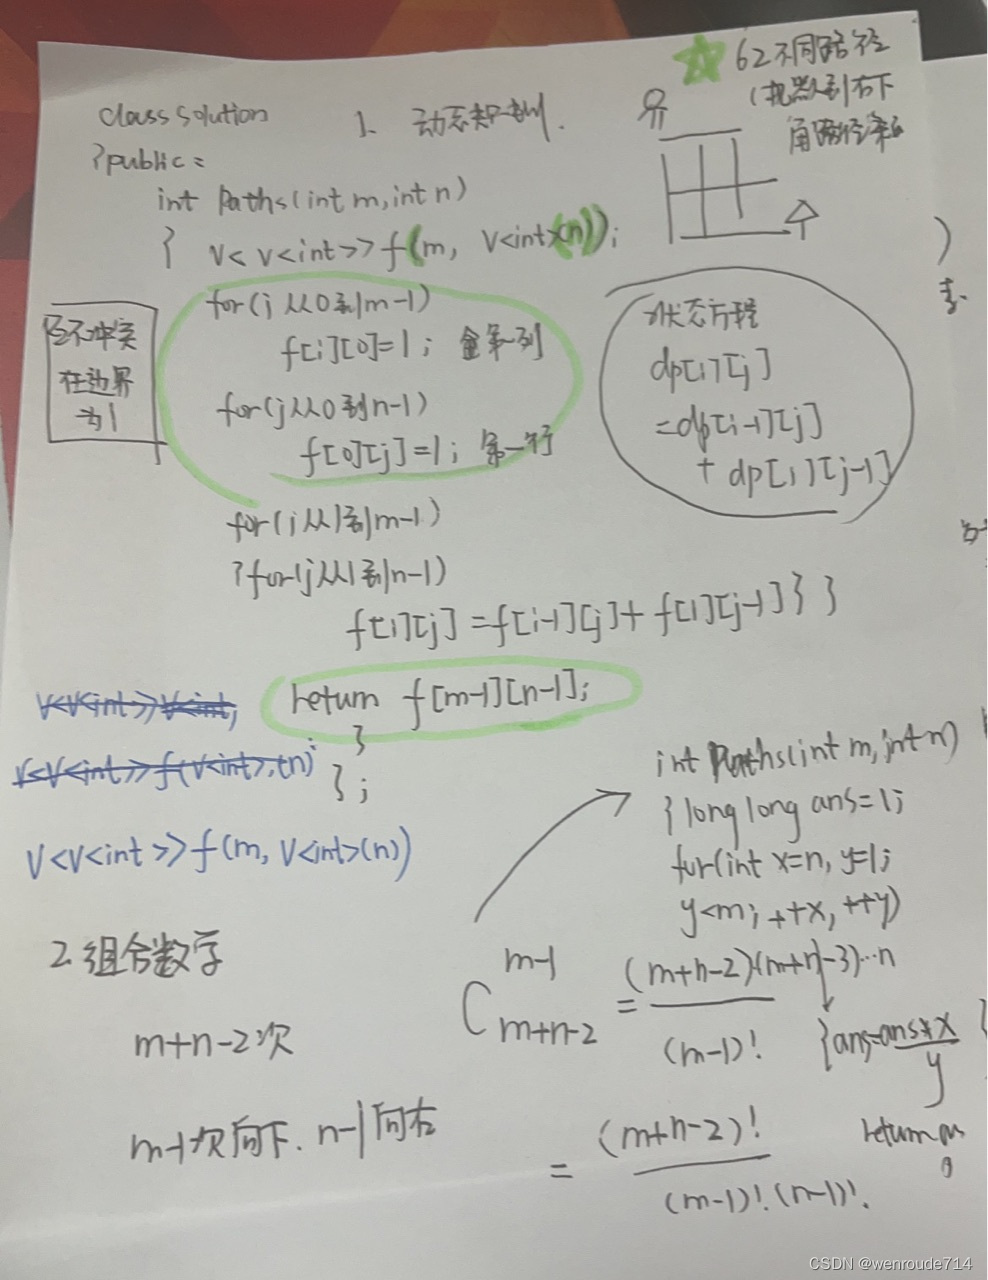 62不同路径
(机器人到右下
角路径条数
class solution
1. 动态规划.
{public:
int Paths(int m,int n)
{ V<V<int>>f(m, V<int>(n));
for(i从0到m-1)
f[i][0]=1; 第一列
for(j从0到n-1)
f[0][j]=1; 第一行
在边界
为1
状态方程
dp[i][j]
=dp[i-1][j]
+dp[i][j-1]
for(i从1到m-1)
{for(j从1到n-1)
f[i][j]=f[i-1][j]+f[i][j-1]}}
return f[m-1][n-1];
}
};
V<V<int>>V<int,
V<V<int>>f(V<int>,(n)
V<V<int>>f(m,V<int>(n))
int Paths(int m,int n)
{long long ans=1;
for(int x=n,y=1;
y<m;++x,++y)
{ans=ans*x/y
}
return ans
2.组合数学
m+n-2次
m-1次向下.n-1向右
C m-1 m+n-2 = (m+n-2)(m+n-3)…n / (m-1)!
= (m+n-2)! / (m-1)!.(n-1)!.
CSDN @wenroude714